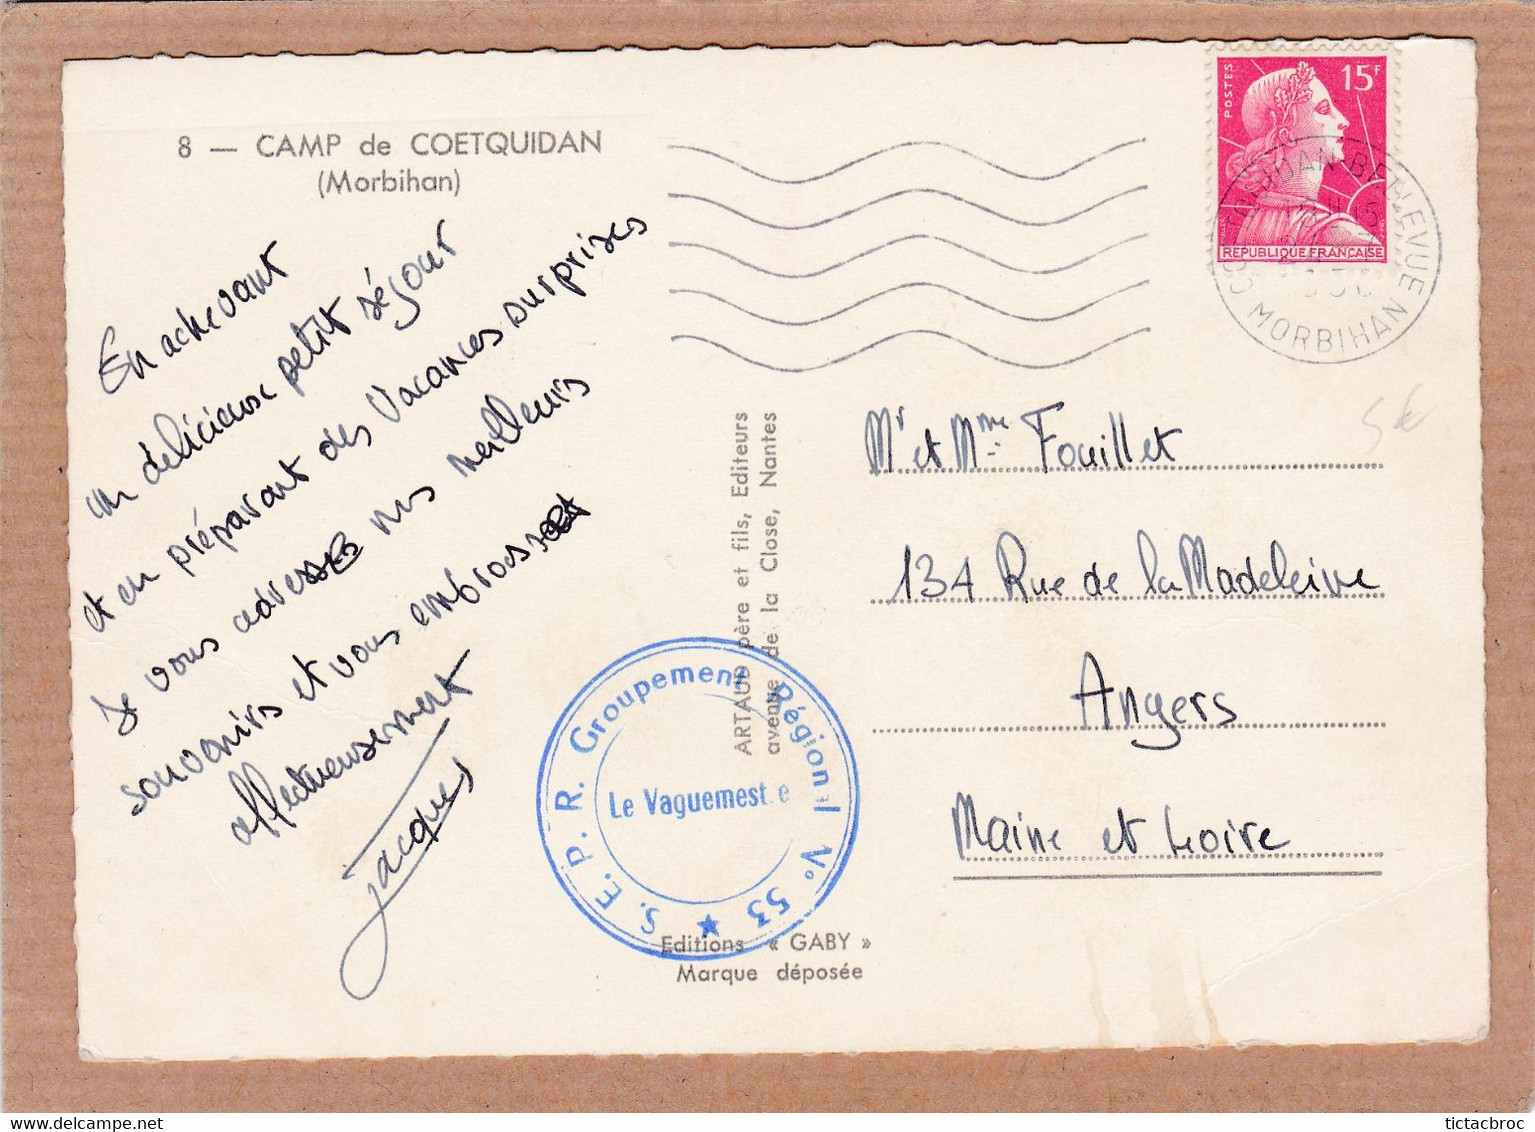 8 — CAMP de COETQUIDAN
(Morbihan)
En achevant
un délicieux petit séjour
et en préparant des vacances surprises
Je vous adresse mes meilleurs
souvenirs et vous embrasse
affectueusement
Jacques
POSTES
15F
REPUBLIQUE FRANÇAISE
BELLEVUE
MORBIHAN
5€
Mr et Mme Fouillet
134 Rue de la Madeleine
Angers
Maine et Loire
ARTAUD père et fils, Editeurs
avenue de la Close, Nantes
S.E.P.R. Groupement Régional No 53
Le Vaguemest e
Editions « GABY »
Marque déposée
tictacbroc